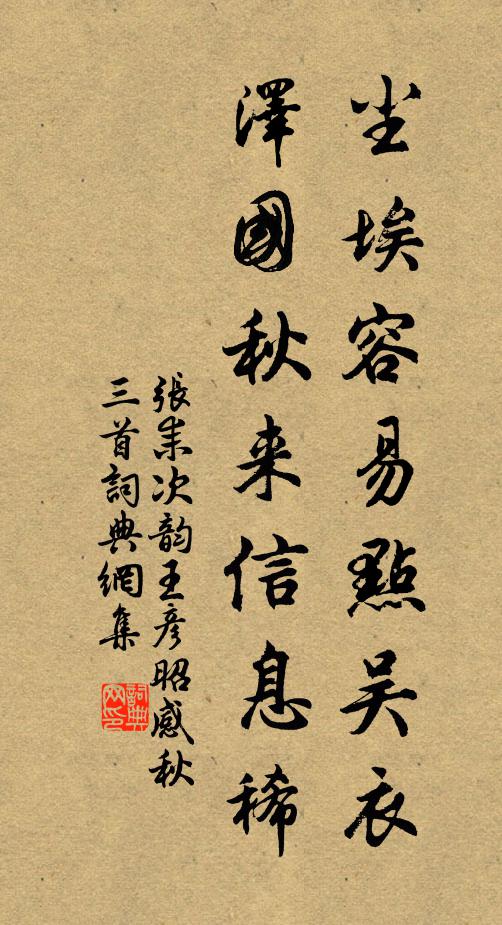 尘埃容易點吴衣
澤國秋来信息稀
張耒次韵王彦昭感秋
三首詞典網集
詞典
网印